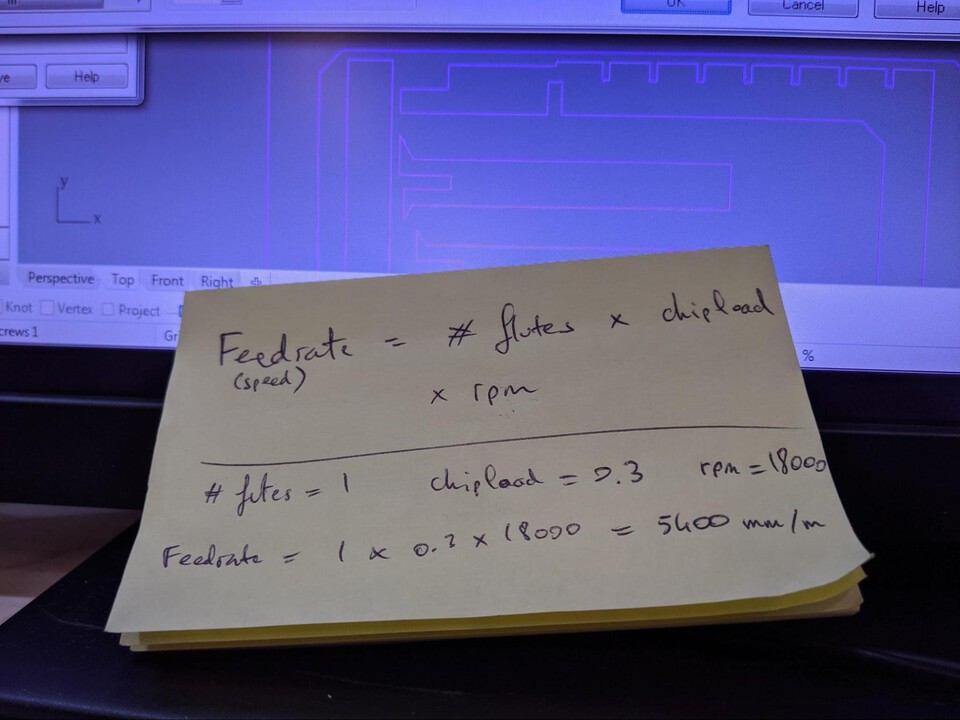 OK Cancel Help
ve Help
y
x
Perspective Top Front Right
Knot Vertex Project
crews 1 Gr
%
Feedrate = # flutes x chipload
(speed)
x rpm
# flutes = 1 chipload = 0.3 rpm = 18000
Feedrate = 1 x 0.3 x 18000 = 5400 mm/m